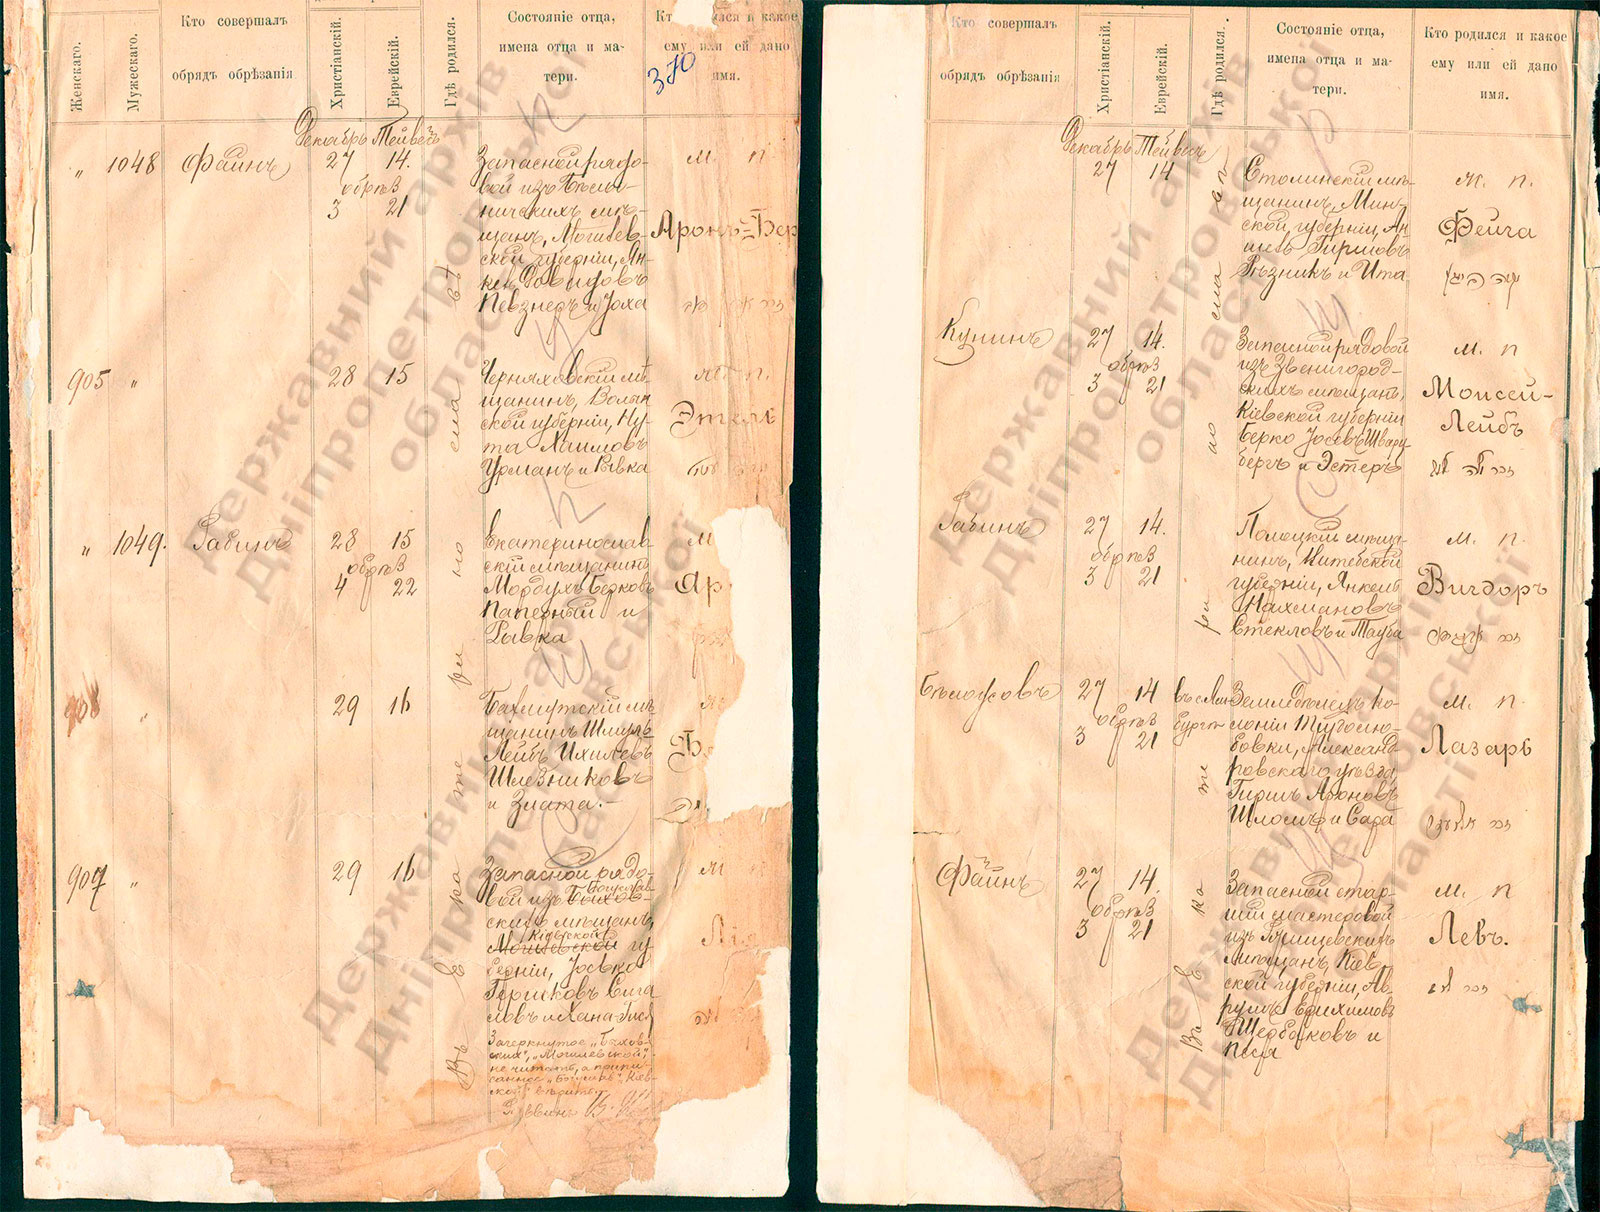 Женскаго.
Мужескаго.
Кто совершалъ
обрядъ обрѣзанія
Христіанскій.
Еврейскій.
Гдѣ родился.
Состояніе отца,
имена отца и ма-
тери.
ился и какое
ему или ей дано
имя.
Декабрь Тейвесъ
„ 1048 Файнъ 27 14.
обрѣз
3 21
Запасной рядо-
вой изъ
ничскихъ мѣ-
щанъ, Могилев-
ской губерніи, Ян-
кев. Довидовъ
Певзнеръ и Иоха
м. п.
Аронъ=Бер
905 „ 28 15
Черняховскій мѣ-
щанинъ, Волын
ской губерніи, Ну-
та Хаимовъ
Урманъ и Ривка
Этель
„ 1049. Рабинъ 28 15
обрѣз
4 22
Екатеринослав
скій мѣщанинъ
Мордухъ Берковъ
Паперный и
Рывка
м
Ар
908 „ 29 16
Бахмутскій мѣ
щанинъ Шмуль
Лейбъ Ихилевъ
Шлезниковъ
и Злата.-
907 „ 29 16
Запасной рядо-
вой изъ Быхов-
Богуслав-
скихъ мѣщанъ,
Кіевской
Могилевской гу
берніи, Іосько
Гершковъ
ловъ и Хана-Гися
Зачеркнутое „Быхов-
скихъ", „Могилевской",
не читать, а припи-
санное „Богуслав" „Кіев-
ской" вѣрить.
Раввинъ
Въ Екатеринославѣ
Кто совершалъ
обрядъ обрѣзанія
Христіанскій.
Еврейскій.
Гдѣ родился.
Состояніе отца,
имена отца и ма-
тери.
Кто родился и какое
ему или ей дано
имя.
Декабрь Тейвесъ
27 14
Столинскій мѣ-
щанинъ, Мин-
ской губерніи, Ан-
шель Гиршовъ
Рѣзникъ и Ита
ж. п.
Фейга
Кунинъ 27 14.
обрѣз
3 21
Запасной рядовой
изъ Звенигород-
скихъ мѣщанъ,
Кіевской губерніи
Берко Іосевъ Шварц
бергъ и Эстеръ
м. п
Моисей-
Лейбъ
Рабинъ 27 14.
обрѣз
3 21
Полоцкій мѣща-
нинъ, Витебской
губерніи, Янкель
Нахмановъ
Стекловъ и Тауба
м. п.
Вигдоръ
Бѣлоусовъ 27 14
обрѣз
3 21
Земледѣлецъ ко-
лоніи Трудолю-
бовки, Александ
ровскаго уѣзда,
Гиршъ Ароновъ
Шломъ и Сара
м. п.
Лазарь
Файнъ 27 14.
обрѣз
3 21
Запасной стар-
шій мастеровой
изъ
мѣщанъ, Кіев
ской губерніи, Ав-
румъ Ефихимовъ
Щербаковъ и
Песя
м. п
Левъ.
Въ Екатеринославѣ
Державний архів
Дніпропетровської
області
Державний архів
Дніпропетровської
області